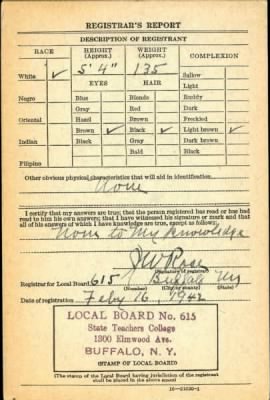 REGISTRAR'S REPORT
DESCRIPTION OF REGISTRANT
RACE HEIGHT (Approx.) WEIGHT (Approx.) COMPLEXION
White ✓ 5' 4" 135 Sallow
EYES HAIR Light
Negro Blue Blonde Ruddy
Gray Red Dark
Oriental Hazel Brown Freckled
Brown ✓ Black ✓ Light brown ✓
Indian Black Gray Dark brown
Bald Black
Filipino
Other obvious physical characteristics that will aid in identification
None
I certify that my answers are true; that the person registered has read or has had
read to him his own answers; that I have witnessed his signature or mark and that
all of his answers of which I have knowledge are true, except as follows:
None to My Knowledge
J W Rose
(Signature of registrar)
Registrar for Local Board 615 Buffalo NY
(Number) (City or county) (State)
Date of registration Feby 16, 1942
LOCAL BOARD No. 615
State Teachers College
1300 Elmwood Ave.
BUFFALO, N. Y.
(STAMP OF LOCAL BOARD)
(The stamp of the Local Board having jurisdiction of the registrant
shall be placed in the above space)